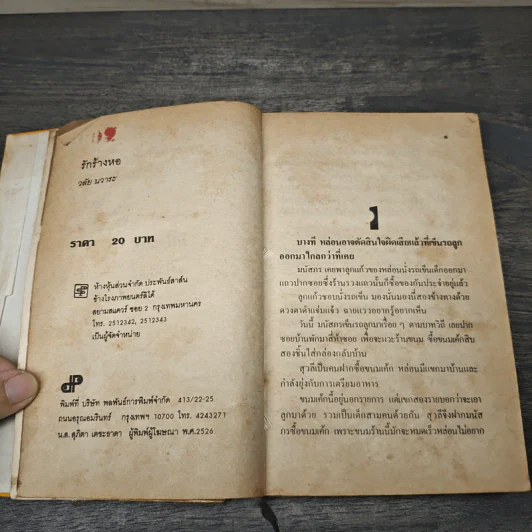 รักร้างหอ
วลัย นวาระ
ราคา 20 บาท
ห้างหุ้นส่วนจำกัด ประพันธ์สาส์น
ข้างโรงภาพยนตร์ลิโด้
สยามสแควร์ ซอย 2 กรุงเทพมหานคร
โทร. 2512342, 2512343
เป็นผู้จัดจำหน่าย
dp
พิมพ์ที่ บริษัท พลพันธ์การพิมพ์จำกัด 413/22-25
ถนนอรุณอมรินทร์ กรุงเทพฯ 10700 โทร. 4243271
น.ส. สุภิตา เดชะธาดา ผู้พิมพ์ผู้โฆษณา พ.ศ.2526
1
บางที หล่อนอาจตัดสินใจผิดเสียแล้วที่เข็นรถลูก
ออกมาไกลกว่าที่เคย
มนัสภร เคยพาลูกแก้วของหล่อนนั่งรถเข็นเด็กออกมา
แถวปากซอยซึ่งร้านรวงแถวนั้นก็ซื้อของกันประจำอยู่แล้ว
ลูกแก้วชอบนั่งรถเข็น มองนั่นมองนี่สองข้างทางด้วย
ดวงตาดำแจ่มแจ๋ว ฉายแววอยากรู้อยากเห็น
วันนี้ มนัสภรเข็นรถลูกมาเรื่อย ๆ ตามบาทวิถี เลยปาก
ซอยบ้านพักมาสี่ห้าซอย เพื่อจะแวะร้านขนม ซื้อขนมเค้กสิบ
สองชิ้นใส่กล่องกลับบ้าน
สุวลีเป็นคนฝากซื้อขนมเค้ก หล่อนมีแขกมาบ้านและ
กำลังยุ่งกับการเตรียมอาหาร
ขนมเค้กนี้อยู่นอกรายการ แต่แขกสองรายบอกว่าจะเอา
ลูกมาด้วย รวมเป็นเด็กสามคนด้วยกัน สุวลีจึงฝากมนัส
ภรซื้อขนมเค้ก เพราะขนมร้านนี้มักจะหมดเร็วหล่อนไม่อยาก